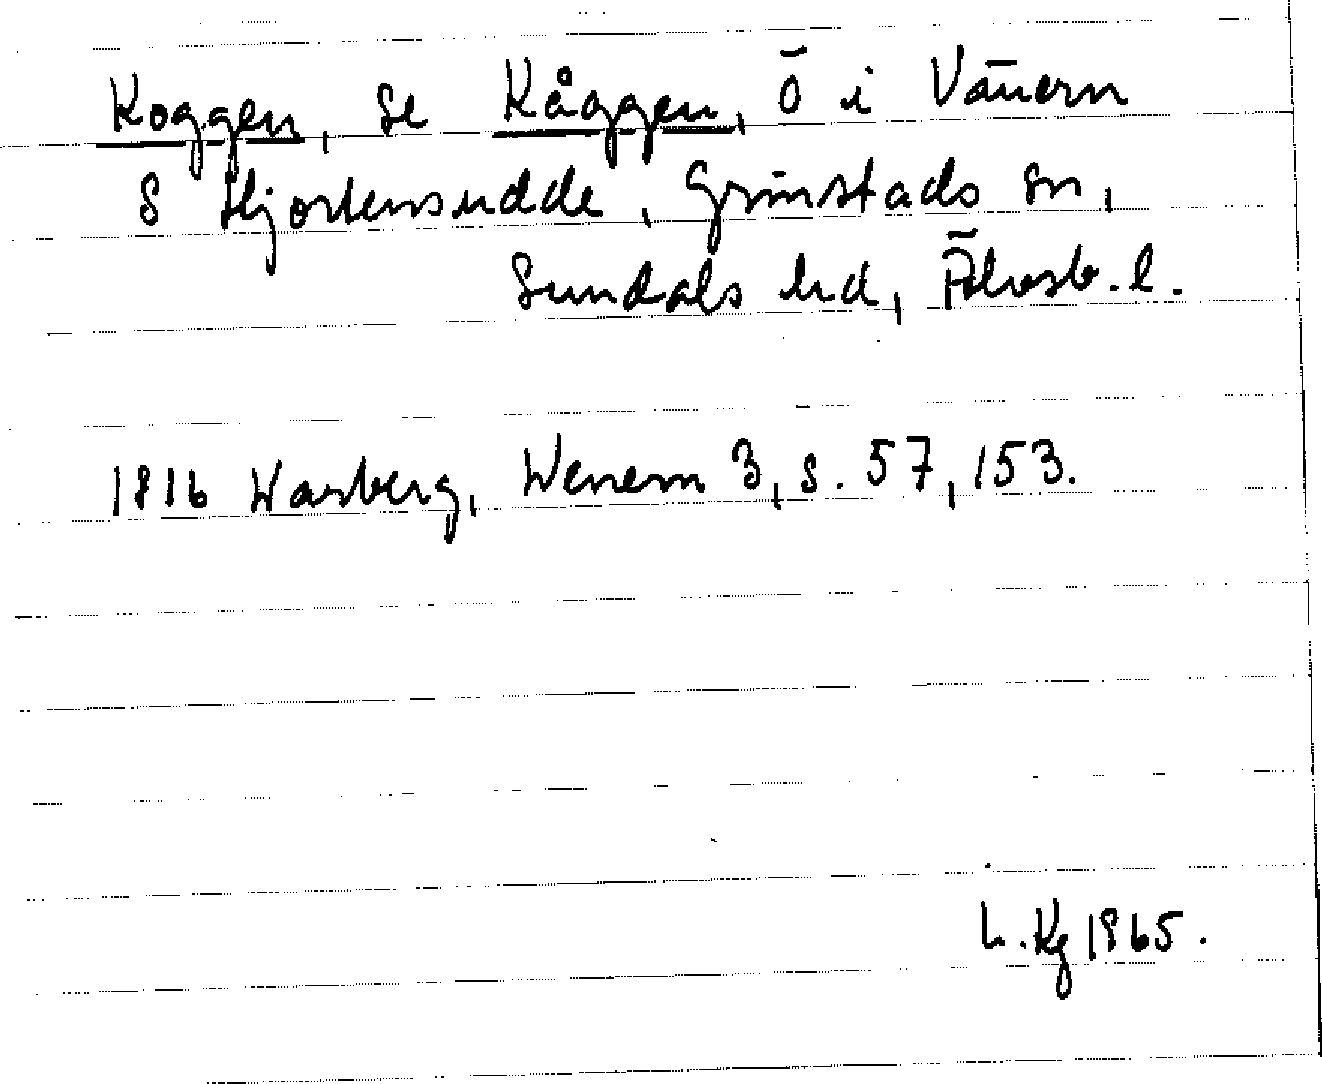 Koggen, se Kåggen, ö i Vänern
S Hjortensudde, Grinstads sn,
Sundals hd, Älvsb. l.
1816 Warberg, Wenern 3, s. 57, 153.
L. Kg 1965.